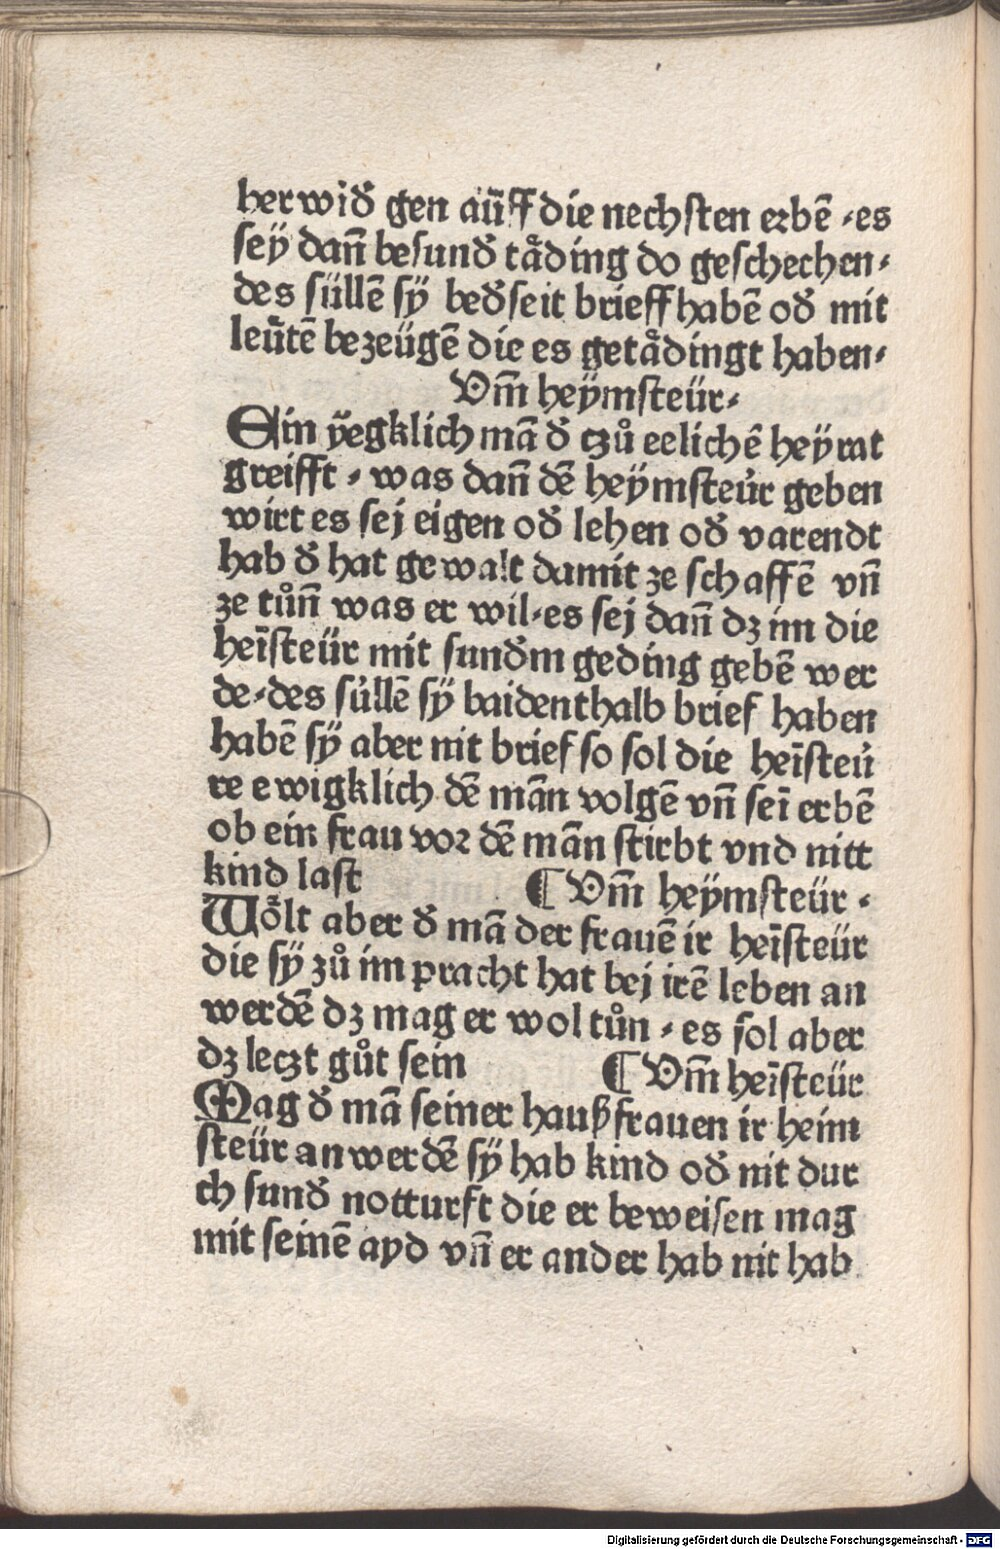 her wið gen aüff die nechsten erbē ·es
seÿ dan̄ besunð tåding do geschechen·
des süllē sÿ beðseit brieff habē oð mit
leütē bezeügē die es getådingt haben·
Vm̄ heÿmsteür·
Ein ÿegklich mā ð czů eelichē heÿrat
greifft · was dan̄ dē heÿmsteür geben
wirt es sej eigen oð lehen oð varendt
hab ð hat gewalt damit ze schaffē vn̄
ze tůn̄ was er wil·es sej dan̄ dz im die
heīsteür mit sunðm geding gebē wer
de·des süllē sÿ baidenthalb brief haben
habē sÿ aber nit brief so sol die heīsteü
re ewigklich dē mān volgē vn̄ seī erbē
ob ein frau vor dē mān stirbt vnd nitt
kind last ¶ Vm̄ heÿmsteür ·
Wo̊lt aber ð mā der frauē ir heīsteür
die sÿ zů im pracht hat bej irē leben an
werdē dz mag er wol tůn · es sol aber
dz leczt gůt sein ¶ Vm̄ heīsteür
Mag ð mā seiner haußfrauen ir heim
steür anwerdē sÿ hab kind oð nit dur
ch sunð notturft die er beweisen mag
mit seinē ayd vn̄ er ander hab nit hab
Digitalisierung gefördert durch die Deutsche Forschungsgemeinschaft - DFG